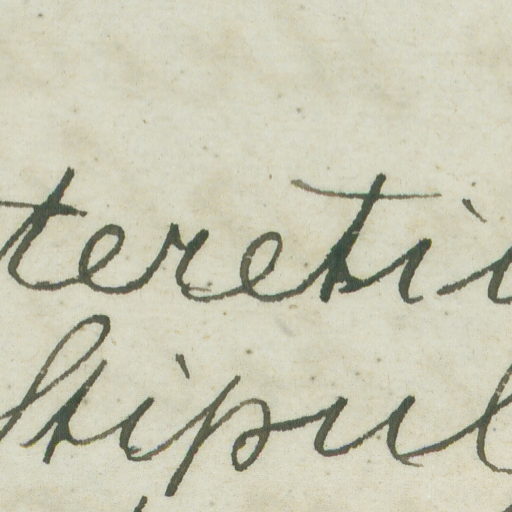 tereti
Stipul